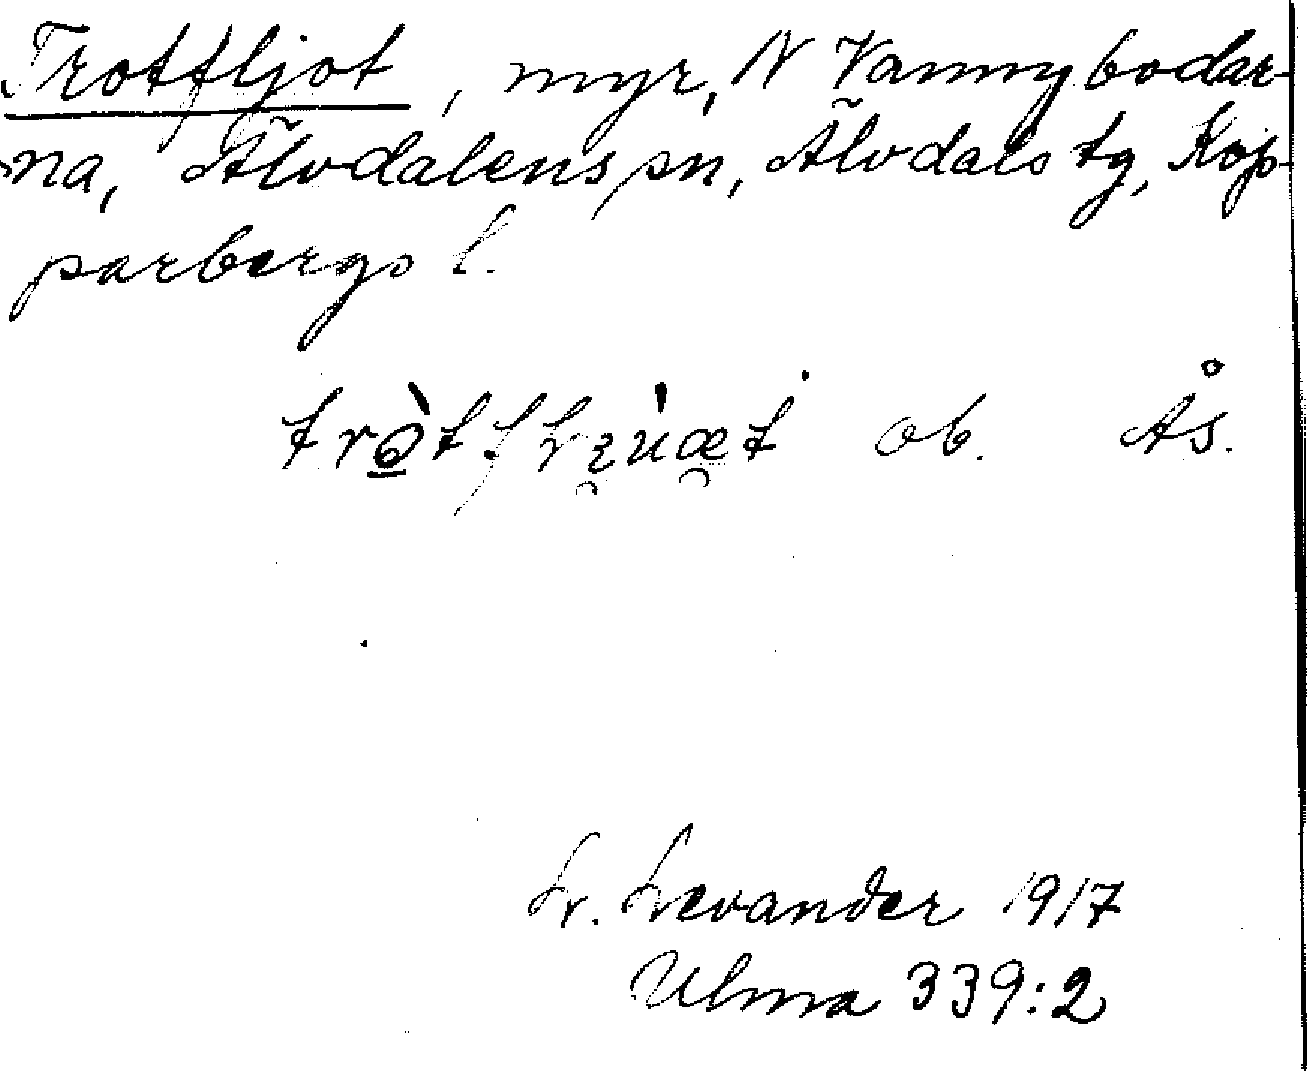 Trotfljot, myr, N Vamnybodar-
na, Älvdalens sn, Älvdals tg, Kop-
parbergs l.
ob. Ås.
L. Levander 1917
Ulma 339:2